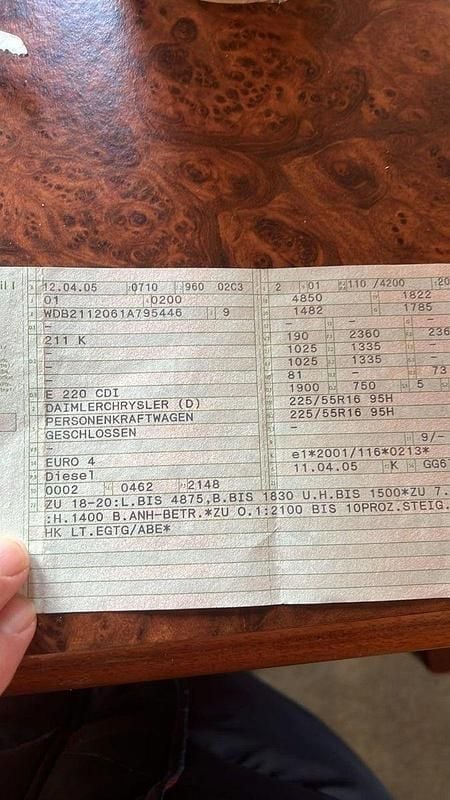 12.04.05 0710 960 02C3 2 01 110 /4200
01 0200 4850 1822
WDB2112061A795446 9 1482 1785
- - -
211 K 190 2360 236
- 1025 1335 -
- 1025 1335 -
- 81 - 73
E 220 CDI 1900 750 5 -
DAIMLERCHRYSLER (D) 225/55R16 95H
PERSONENKRAFTWAGEN 225/55R16 95H
GESCHLOSSEN -
- 9/-
EURO 4 e1*2001/116*0213*
Diesel 11.04.05 K GG6
0002 0462 2148
ZU 18-20:L.BIS 4875,B.BIS 1830 U.H.BIS 1500*ZU 7.
:H.1400 B.ANH-BETR.*ZU O.1:2100 BIS 10PROZ.STEIG.
HK LT.EGTG/ABE*